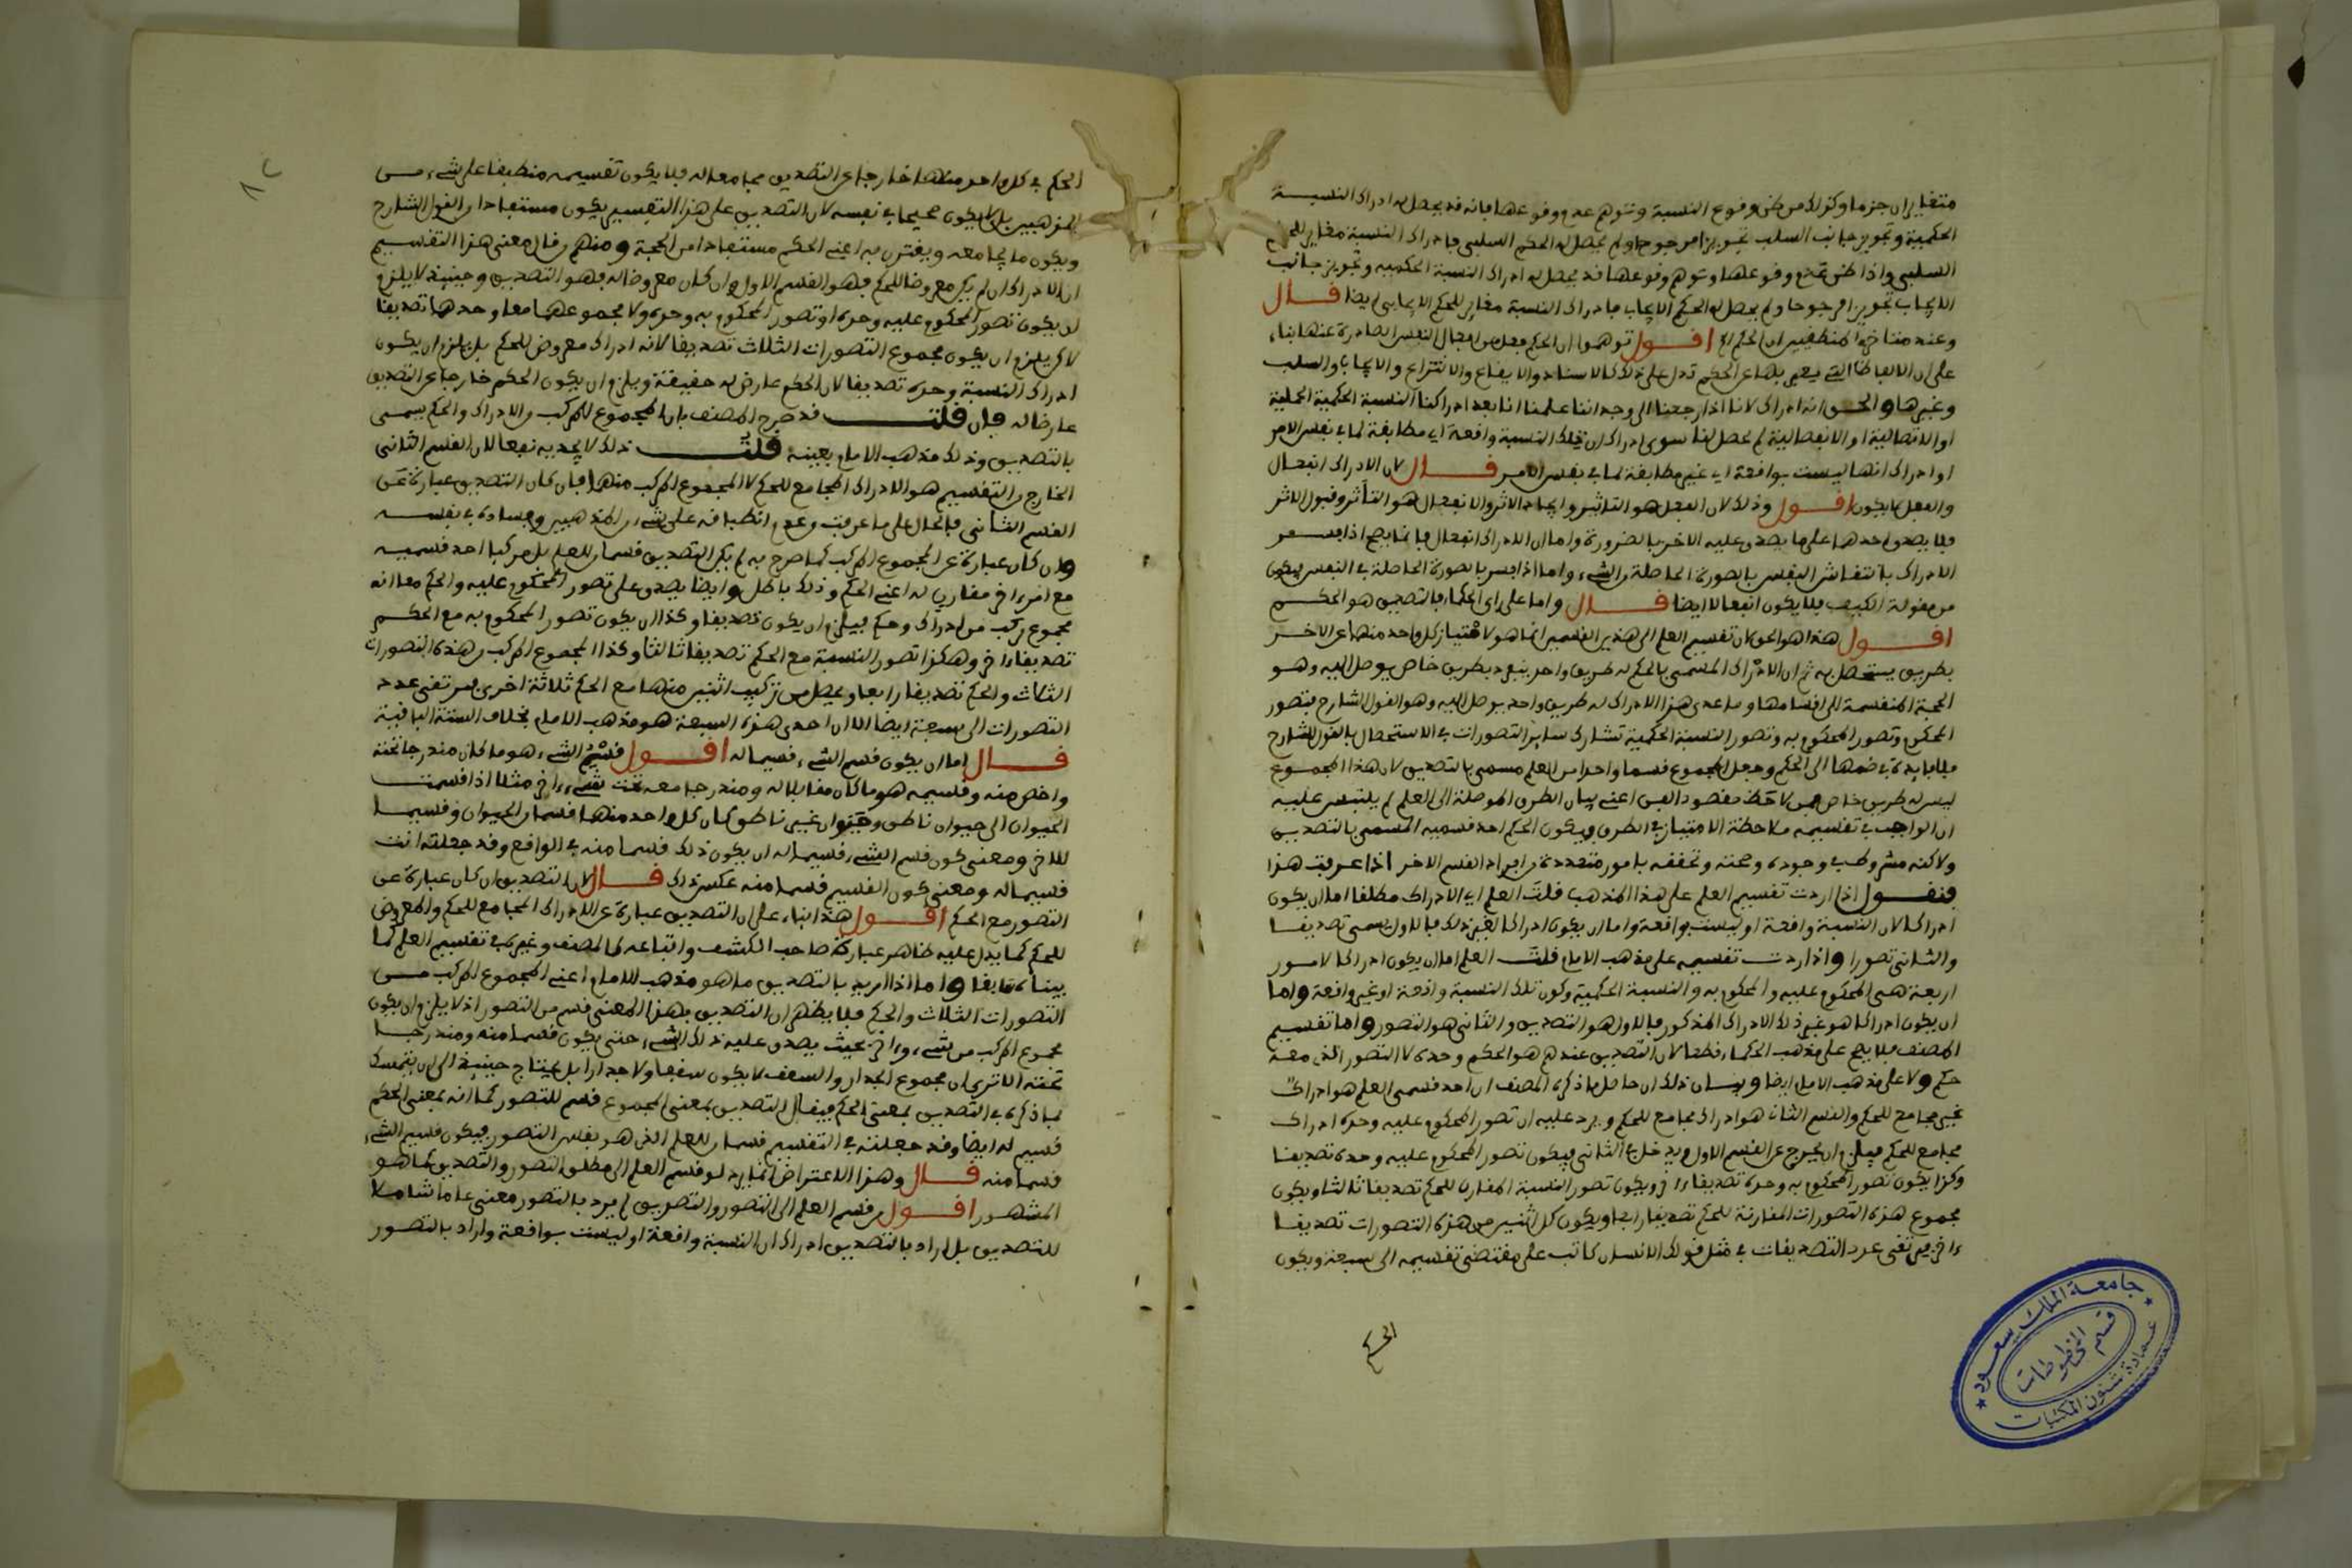 متغايران جزما وكذا من ظن وقوع النسبة وتوهم عدم وقوعها فانه قد يحصل له ادراك النسبة
الحكمية وتجويز جانب السلب تجويزا مرجوحا ولم يحصل له الحكم السلبي فادراك النسبة مغاير للحكم
السلبي واذا ظن عدم وقوعها وتوهم وقوعها قد يحصل له ادراك النسبة الحكمية وتجويز جانب
الايجاب تجويزا مرجوحا ولم يحصل له الحكم الايجابي فادراك النسبة مغاير للحكم الايجابي ايضا قال
وعند متاخري المنطقيين ان الحكم الخ اقول توهموا ان الحكم فعل من افعال النفس الصادرة عنها بناء
على ان الالفاظ التي يعبر بها عن الحكم تدل على ذلك كالاسناد والايقاع والانتزاع والايجاب والسلب
وغيرها والحق انه ادراك لانا اذا رجعنا الى وجداننا علمنا انا بعد ادراكنا النسبة الحكمية الحملية
او الاتصالية او الانفصالية لم يحصل لنا سوى ادراك ان تلك النسبة واقعة اي مطابقة لما في نفس الامر
او ادراك انها ليست بواقعة اي غير مطابقة لما في نفس الامر قال لان الادراك انفعال
والفعل لا يكون اقول وذلك لان الفعل هو التاثير وايجاد الاثر والانفعال هو التأثر وقبول الاثر
فلا يصدق احدهما على ما يصدق عليه الاخر بالضرورة واما ان الادراك انفعال فانما يصح اذا فسر
الادراك بانتقاش النفس بالصورة الحاصلة من الشيء واما اذا فسر بالصورة الحاصلة في النفس فيكون
من مقولة الكيف فلا يكون انفعالا ايضا قال واما على راي الحكماء فالتصديق هو الحكم
اقول هذا هو الحق لان تقسيم العلم الى هذين القسمين انما هو لامتياز كل واحد منهما عن الاخر
بطريق يستحصل به ثم ان الادراك المسمى بالحكم له طريق واحد ينفرد بطريق خاص يوصل اليه وهو
الحجة المنقسمة الى اقسامها وما عدى هذا الادراك له طريق واحد يوصل اليه وهو القول الشارح فتصور
المحكوم وتصور المحكوم به وتصور النسبة الحكمية تشارك سائر التصورات في الاستحصال بالقول الشارح
فلا فايدة في ضمها الى الحكم وجعل المجموع قسما واحدا من العلم مسمى بالتصديق لان هذا المجموع
ليس له طريق خاص فمن لاحظ مقصود الفن اعني بيان الطرق الموصلة الى العلم لم يلتبس عليه
ان الواجب في تقسيمه ملاحظة الامتياز في الطرق فيكون الحكم احد قسميه المسمى بالتصديق
ولاكنه مشروط في وجوده وصحته وتحققه بامور متعددة من افراد القسم الاخر اذا عرفت هذا
فنقول اذا اردت تقسيم العلم على هذا المذهب قلت العلم اي الادراك مطلقا اما ان يكون
ادراكا لان النسبة واقعة او ليست بواقعة واما ان يكون ادراكا لغير ذلك فالاول يسمى تصديقا
والثاني تصورا واذا اردت تقسيمه على مذهب الامام قلت العلم اما ان يكون ادراكا لامور
اربعة هي المحكوم عليه والمحكوم به والنسبة الحكمية وكون تلك النسبة واقعة او غير واقعة واما
ان يكون ادراكا هو غير ذلك الادراك المذكور فالاول هو التصديق والثاني هو التصور واما تقسيم
المصنف فلا يصح على مذهب الحكماء قطعا لان التصديق عندهم هو الحكم وحده لا التصور الذي معه
حكم ولا على مذهب الامام ايضا وبيان ذلك ان حاصل ما ذكره المصنف ان احد قسمي العلم هو ادراك
غير مجامع للحكم والقسم الثاني هو ادراك مجامع للحكم ويرد عليه ان تصور المحكوم عليه وحده ادراك
مجامع للحكم فيلزم ان يخرج عن القسم الاول ويدخل في الثاني فيكون تصور المحكوم عليه وحده تصديقا
وكذا يكون تصور المحكوم به وحده تصديقا ءاخر ويكون تصور النسبة المقارن للحكم تصديقا ثالثا ويكون
مجموع هذه التصورات المقارنة للحكم تصديقا رابعا ويكون كل اثنين من هذه التصورات تصديقا
ءاخر فيرتقى عدد التصديقات في مثل قولك الانسان كاتب على مقتضى تقسيمه الى سبعة ويكون
الحكم
جامعة الملك سعود
قسم المخطوطات
عمادة شئون المكتبات
٨٢
الحكم في كل واحد منها خارجا عن التصديق مجامعا له فلا يكون تقسيمه منطبقا على شيء من
المذهبين بل لا يكون صحيحا في نفسه لان التصديق على هذا التقسيم يكون مستفادا من القول الشارح
ويكون ما يجامعه ويقترن به اعني الحكم مستفادا من الحجة ومنهم من قال معنى هذا التقسيم
ان الادراك ان لم يكن معروضا للحكم فهو القسم الاول وان كان معروضا له فهو التصديق وحينئذ لا يلزم
ان يكون تصور المحكوم عليه وحده او تصور المحكوم به وحده ولا مجموعهما معا وحدهما تصديقا
لاكن يلزم ان يكون مجموع التصورات الثلاث تصديقا لانه ادراك معروض للحكم بل يلزم ان يكون
ادراك النسبة وحده تصديقا لان الحكم عارض له حقيقة ويلزم ان يكون الحكم خارجا عن التصديق
عارضا له فان قلت قد صرح المصنف بان المجموع المركب من الادراك والحكم يسمى
بالتصديق وذلك مذهب الامام بعينه قلت ذلك لا يجديه نفعا لان القسم الثاني
الخارج من التقسيم هو الادراك المجامع للحكم لا المجموع المركب منهما فان كان التصديق عبارة عن
القسم الثاني فالحال على ما عرفت من عدم انطباقه على شيء من المذهبين وفساده في نفسه
وان كان عبارة عن المجموع المركب كما صرح به لم يكن التصديق قسما من العلم بل مركبا احد قسميه
مع امر ءاخر مقارن له اعني الحكم وذلك باطل وايضا يصدق على تصور المحكوم عليه والحكم معا انه
مجموع مركب من ادراك وحكم فيلزم ان يكون تصديقا وكذا ان يكون تصور المحكوم به مع الحكم
تصديقا ءاخر وهكذا تصور النسبة مع الحكم تصديقا ثالثا وكذا المجموع المركب من هذه التصورات
الثلاث والحكم تصديقا رابعا ويحصل من تركيب اثنين منها مع الحكم ثلاثة اخرى فيرتقى عدد
التصورات الى سبعة ايضا الا ان احدى هذه السبعة هو مذهب الامام بخلاف الستة الباقية
قال اما ان يكون قسم الشيء قسيما له اقول قسم الشيء هو ما كان مندرجا تحته
واخص منه وقسيمه هو ما كان مقابلا له ومندرجا معه تحت شيء ءاخر مثلا اذا قسمت
الحيوان الى حيوان ناطق وحيوان غير ناطق كان كل واحد منهما قسما من الحيوان وقسيما
للاخر ومعنى كون قسم الشيء قسيما له ان يكون ذلك قسما منه في الواقع وقد جعلته انت
قسيما له ومعنى كون القسيم قسما منه عكس ذلك قال لان التصديق ان كان عبارة عن
التصور مع الحكم اقول هذا بناء على ان التصديق عبارة عن الادراك المجامع للحكم والمعروض
للحكم كما يدل عليه ظاهر عبارة صاحب الكشف واتباعه كالمصنف وغيره في تقسيم العلم كما
بيناه سابقا واما اذا اريد بالتصديق ما هو مذهب الامام اعني المجموع المركب من
التصورات الثلاث والحكم فلا يظهر ان التصديق بهذا المعنى قسم من التصور اذ لا يلزم ان يكون
مجموع المركب من شيء وءاخر بحيث يصدق عليه ذلك الشيء حتى يكون قسما منه ومندرجا
تحته الا ترى ان مجموع الجدار والسقف لا يكون سقفا ولا جدارا بل يحتاج حينئذ الى ان يتمسك
بما ذكره في التصديق بمعنى الحكم فيقال التصديق بمعنى المجموع قسيم للتصور كما انه بمعنى الحكم
قسيم له ايضا وقد جعلته في التقسيم قسما من العلم الذي هو نفس التصور فيكون قسيم الشيء
قسما منه قال وهذا الاعتراض انما يرد لو قسم العلم الى مطلق التصور والتصديق كما هو
المشهور اقول من قسم العلم الى التصور والتصديق لم يرد بالتصور معنى عاما شاملا
للتصديق بل اراد بالتصديق ادراك ان النسبة واقعة او ليست بواقعة واراد بالتصور